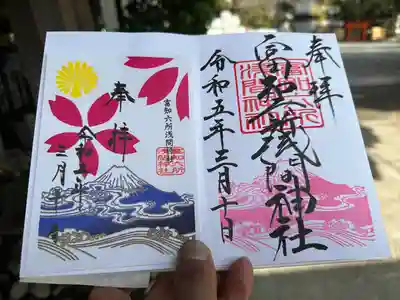 奉拝
富知六所浅間神社
令和五年三月十日
奉拝
富知六所浅間神社
令和五年
三月十日